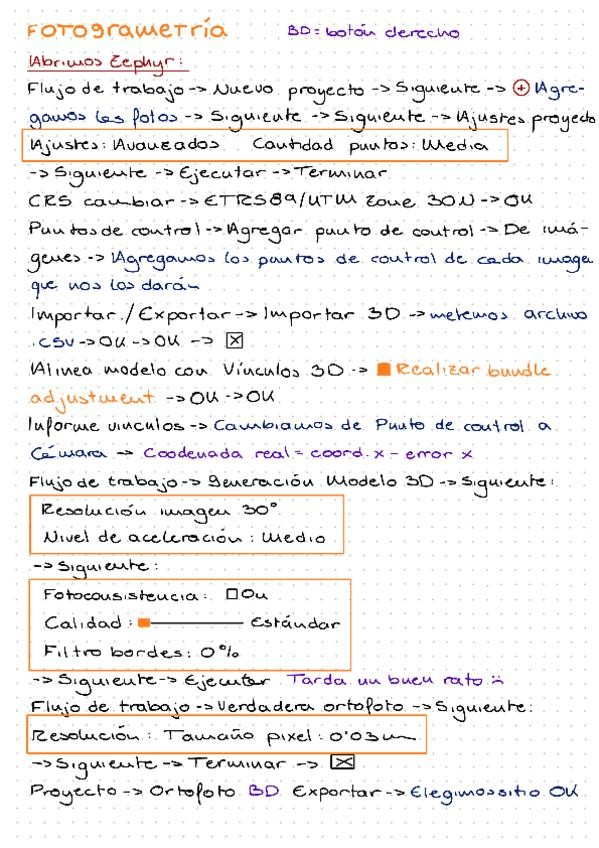 FOTOGRAMETRÍA BD = botón derecho
Abrimos Zephyr:
Flujo de trabajo -> Nuevo proyecto -> Siguiente -> ⊕ Agre-
gamos las fotos -> Siguiente -> Siguiente -> Ajustes proyecto
Ajustes: Avanzados Cantidad puntos: Media
-> Siguiente -> Ejecutar -> Terminar
CRS cambiar -> ETRS89/UTM Zone 30N -> OK
Puntos de control -> Agregar punto de control -> De imá-
genes -> Agregamos los puntos de control de cada imagen
que nos los darán
Importar/Exportar -> Importar 3D -> metemos archivo
.csv -> OK -> OK -> ☒
Alinea modelo con Vínculos 3D -> ■ Realizar bundle
adjustment -> OK -> OK
Informe vinculos -> Cambiamos de Punto de control a
Cámara -> Coodenada real = coord. x - error x
Flujo de trabajo -> Generación Modelo 3D -> Siguiente:
Resolución imagen 30°
Nivel de aceleración: Medio
-> Siguiente:
Fotoconsistencia: □ On
Calidad: ■—— Estándar
Filtro bordes: 0%
-> Siguiente -> Ejecutar Tarda un buen rato :(
Flujo de trabajo -> Verdadera ortofoto -> Siguiente:
Resolución: Tamaño pixel: 0'03m
-> Siguiente -> Terminar -> ☒
Proyecto -> Ortofoto BD Exportar -> Elegimos sitio OK